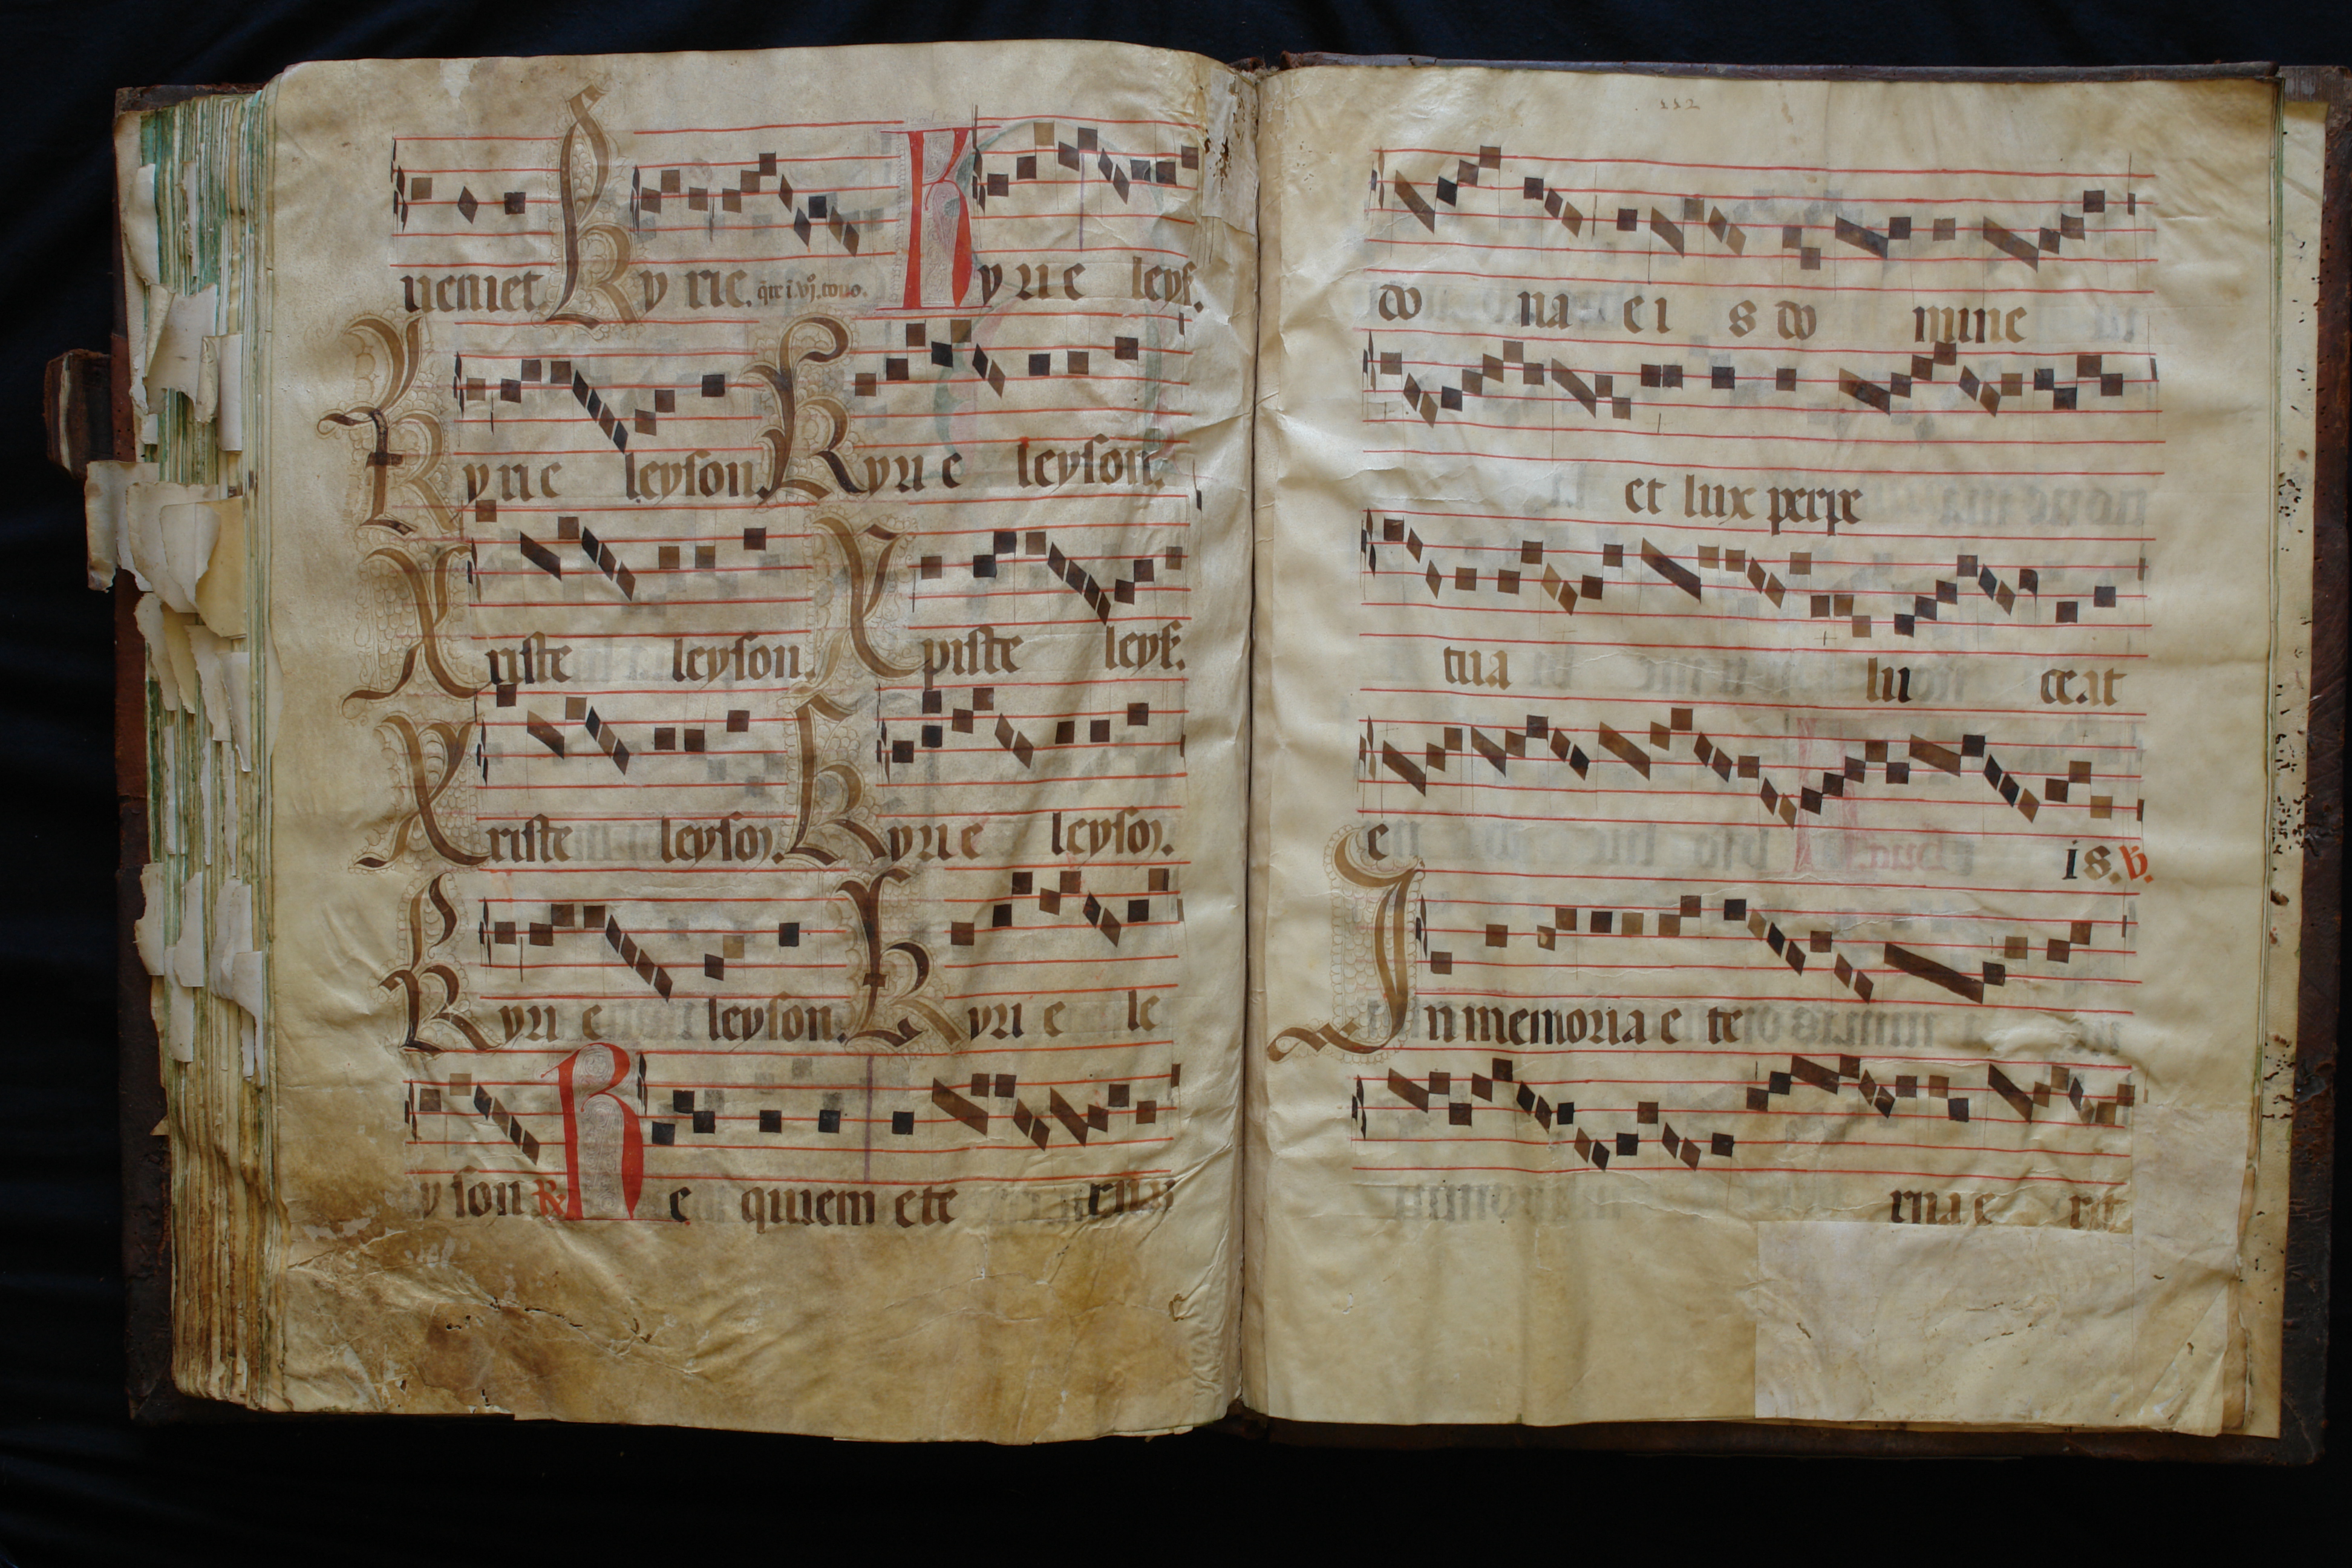 ueniet. Kyrie. q̃re ĩ. vj. tono. Kyrie leys.
Kyrie leyson. Kyrie leyson.
Xriste leyson. Xpiste leys.
Xriste leyson. Kyrie leyson.
Kyrie leyson. Kyrie le
yson ℟ Requiem ete rnã
112
do na ei s do mine
et lux perpe
tua lu ceat
e is. ℣.
In memoria e te
rna e rit